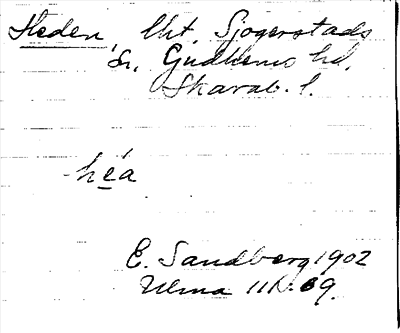 Heden, Utst. Sjogerstads
sn, Gudhems hd,
Skarab. l.
hea
E. Sandberg 1902
Ulma 111:69.